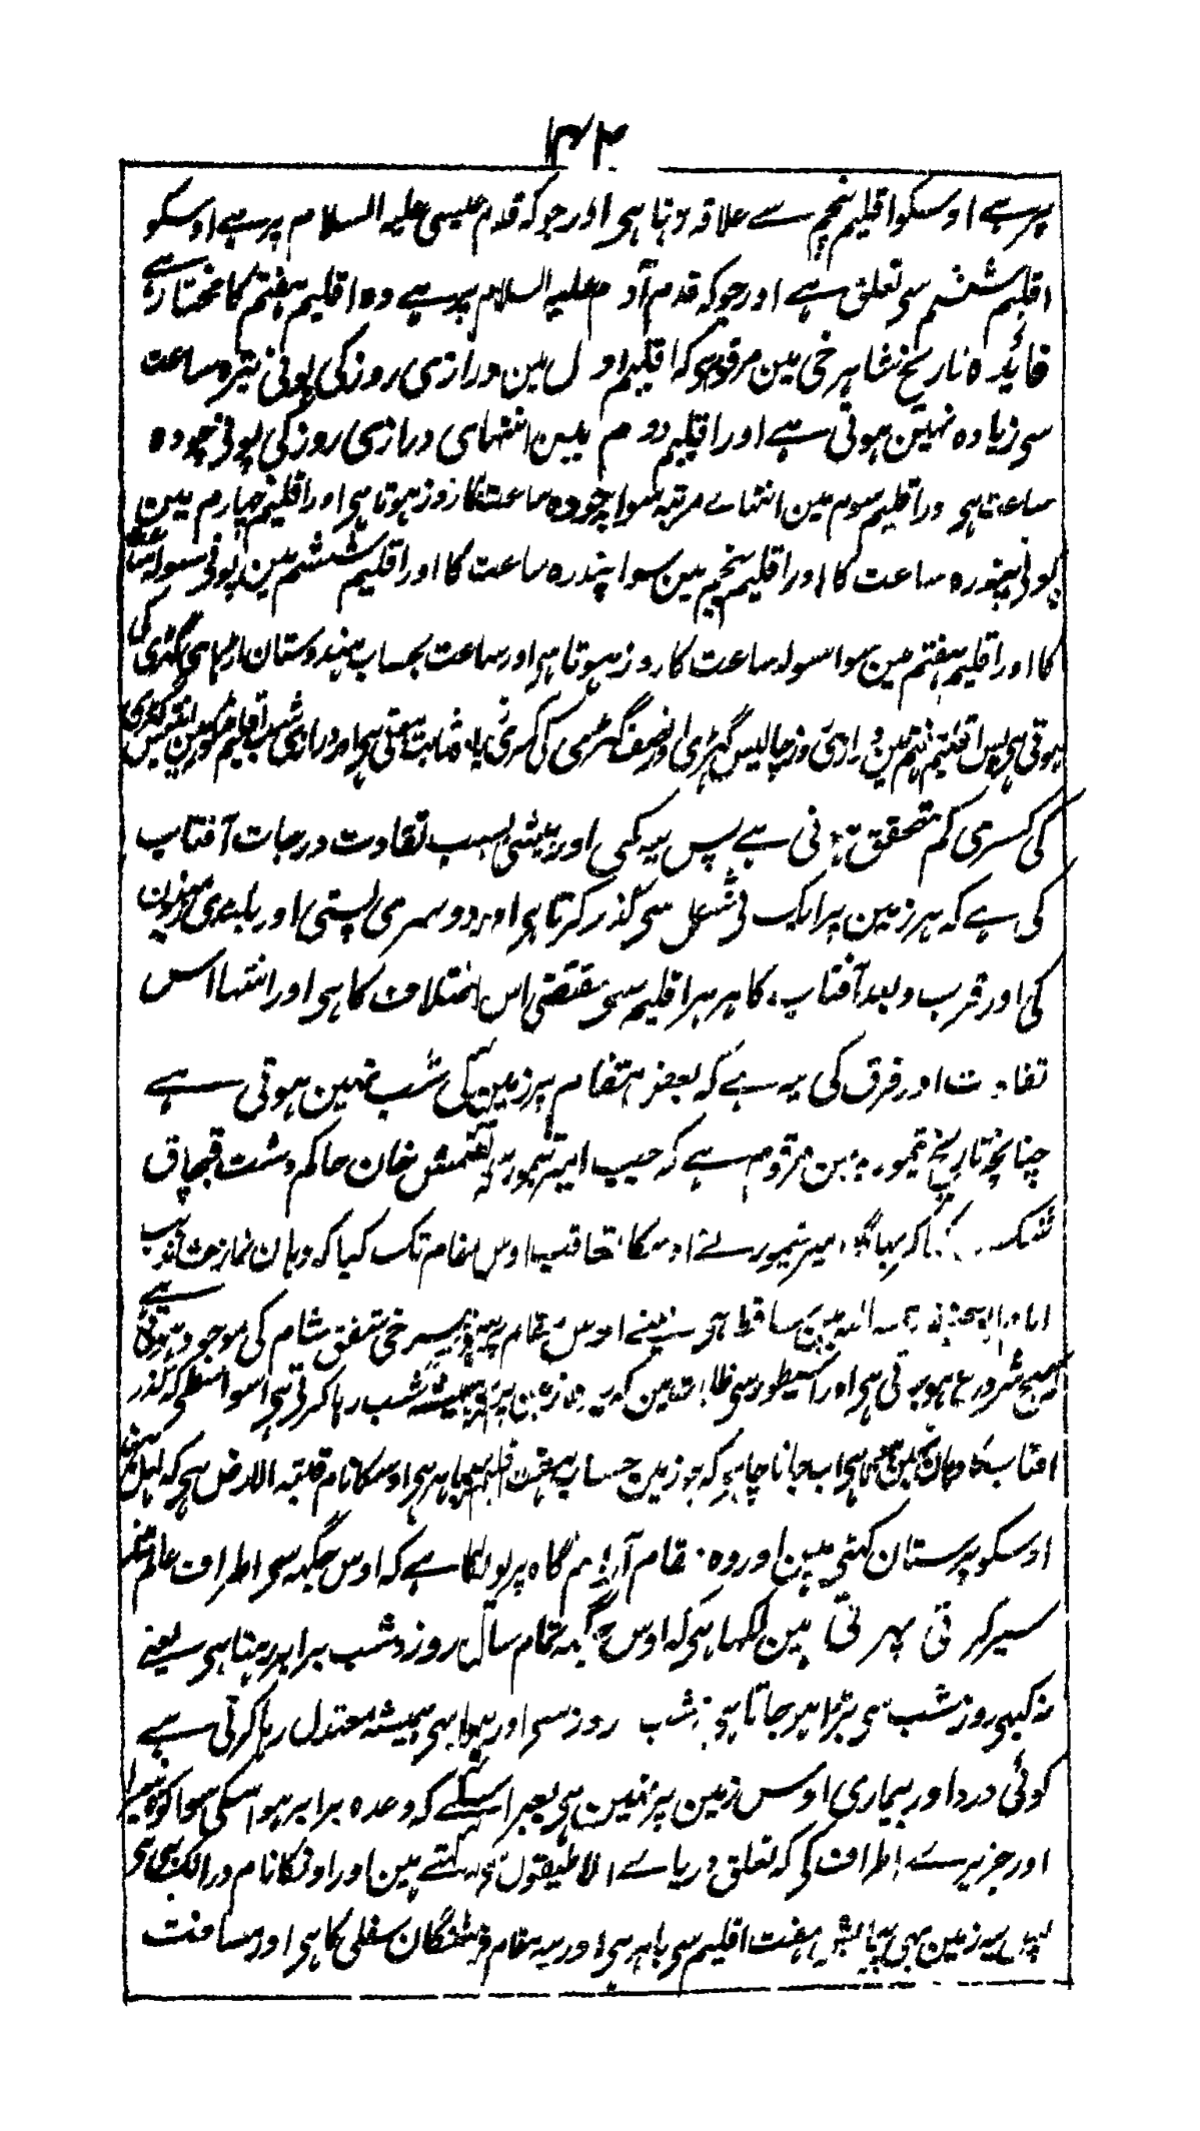 پر ہے اوسکو اقلیم پنجم سے علاقہ رہتا ہی اور جو کہ قدم عیسی علیہ السلام پر ہے اوسکو
اقلیم ششم سی تعلق ہے اور جو کہ قدم آدم علیہ السلام پر ہے وہ اقلیم ہفتم کا مختار ہے
فائدہ تاریخ شاہرخی مین مرقوم ہی کہ اقلیم اول مین درازی روز کی پونی تیرہ ساعت
سی زیادہ نہین ہوتی ہے اور اقلیم دوم مین انتہای درازی روز کی پونی چودہ
ساعت ہی اور اقلیم سوم مین انتہاے مرتبہ سوا چودہ ساعت کا روز ہوتا ہی اور اقلیم چہارم مین
پونی پندرہ ساعت کا اور اقلیم پنجم مین سوا پندرہ ساعت کا اور اقلیم ششم مین پونی سولہ ساعت
کا اور اقلیم ہفتم مین سوا سولہ ساعت کا روز ہوتا ہی اور ساعت بحساب ہندوستان اڑہائی گہڑی کی
ہوتی ہی پس اقلیم ہفتم مین درازی روز چالیس گہڑی اور نصف گہڑی کی کسری زیادہ ثابت ہوتی ہی اور درازی شب اقلیم مذکور مین
کی کسری کم متحقق ہوتی ہے پس یہ کمی اور بیشی بسبب تفاوت درجات آفتاب
کی ہے کہ ہر زمین پر ایک نئی شکل سی گذر کرتا ہی اور دوسری پستی اور بلندی زمینون
کی اور قرب و بعد آفتاب کا ہر ہر اقلیم سی مقتضی اس اختلاف کا ہی اور انتہا اس
تفاوت اور فرق کی یہ ہے کہ بعض مقام پر زمین کی شب نہین ہوتی ہے
چنانچہ تاریخ تیموریہ مین مرقوم ہے کہ جب امیر تیمور سے تقتمش خان حاکم دشت قبچاق
شکست کہا کر بہاگا امیر تیمور نے اوسکا تعاقب اوس مقام تک کیا کہ وہان نماز عشا مذہب
امام ابو حنیفہ رحمہ اللہ مین ساقط ہی یعنے اوس مقام پر سرخی شفق شام کی موجود ہوتی ہے
کہ صبح شروع ہو جاتی ہی اور اسیطور سی ظلمات مین کہ یہ زمین پر ہمیشہ شب رہا کرتی ہی اسواسطے کہ گذر
افتاب کا وہان نہین ہوتا ہی اب جانا چاہیے کہ جو زمین حساب ہفت اقلیم سی باہر ہی اوسکا نام قبۃ الارض ہی کہ اہل ہند
اوسکو پرستان کہتی ہین اور وہ مقام آرام گاہ پریونکا ہے کہ اوس جگہہ سی اطراف عالم مین
سیر کرتی پہرتی ہین لکہا ہی کہ اوس جگہہ تمام سال روز و شب برابر رہتا ہی یعنے
نہ کبہی روز شب سی بڑا ہو جاتا ہی نہ شب روز سی اور ہوا بہی ہمیشہ معتدل رہا کرتی ہے
کوئی درد اور بیماری اوس زمین پر نہین ہی بغیر اسکے کہ وعدہ برابر ہو اسکی سوا کوہ
اور جزیرے اطراف کی کہ تعلق دریاے الاطیقون کہتے ہین اور اونکا نام درالک ہی
پس یہ زمین بہی پیمایش ہفت اقلیم سی باہر ہی اور یہ مقام فرشتگان سفلی کا ہی اور مسافت